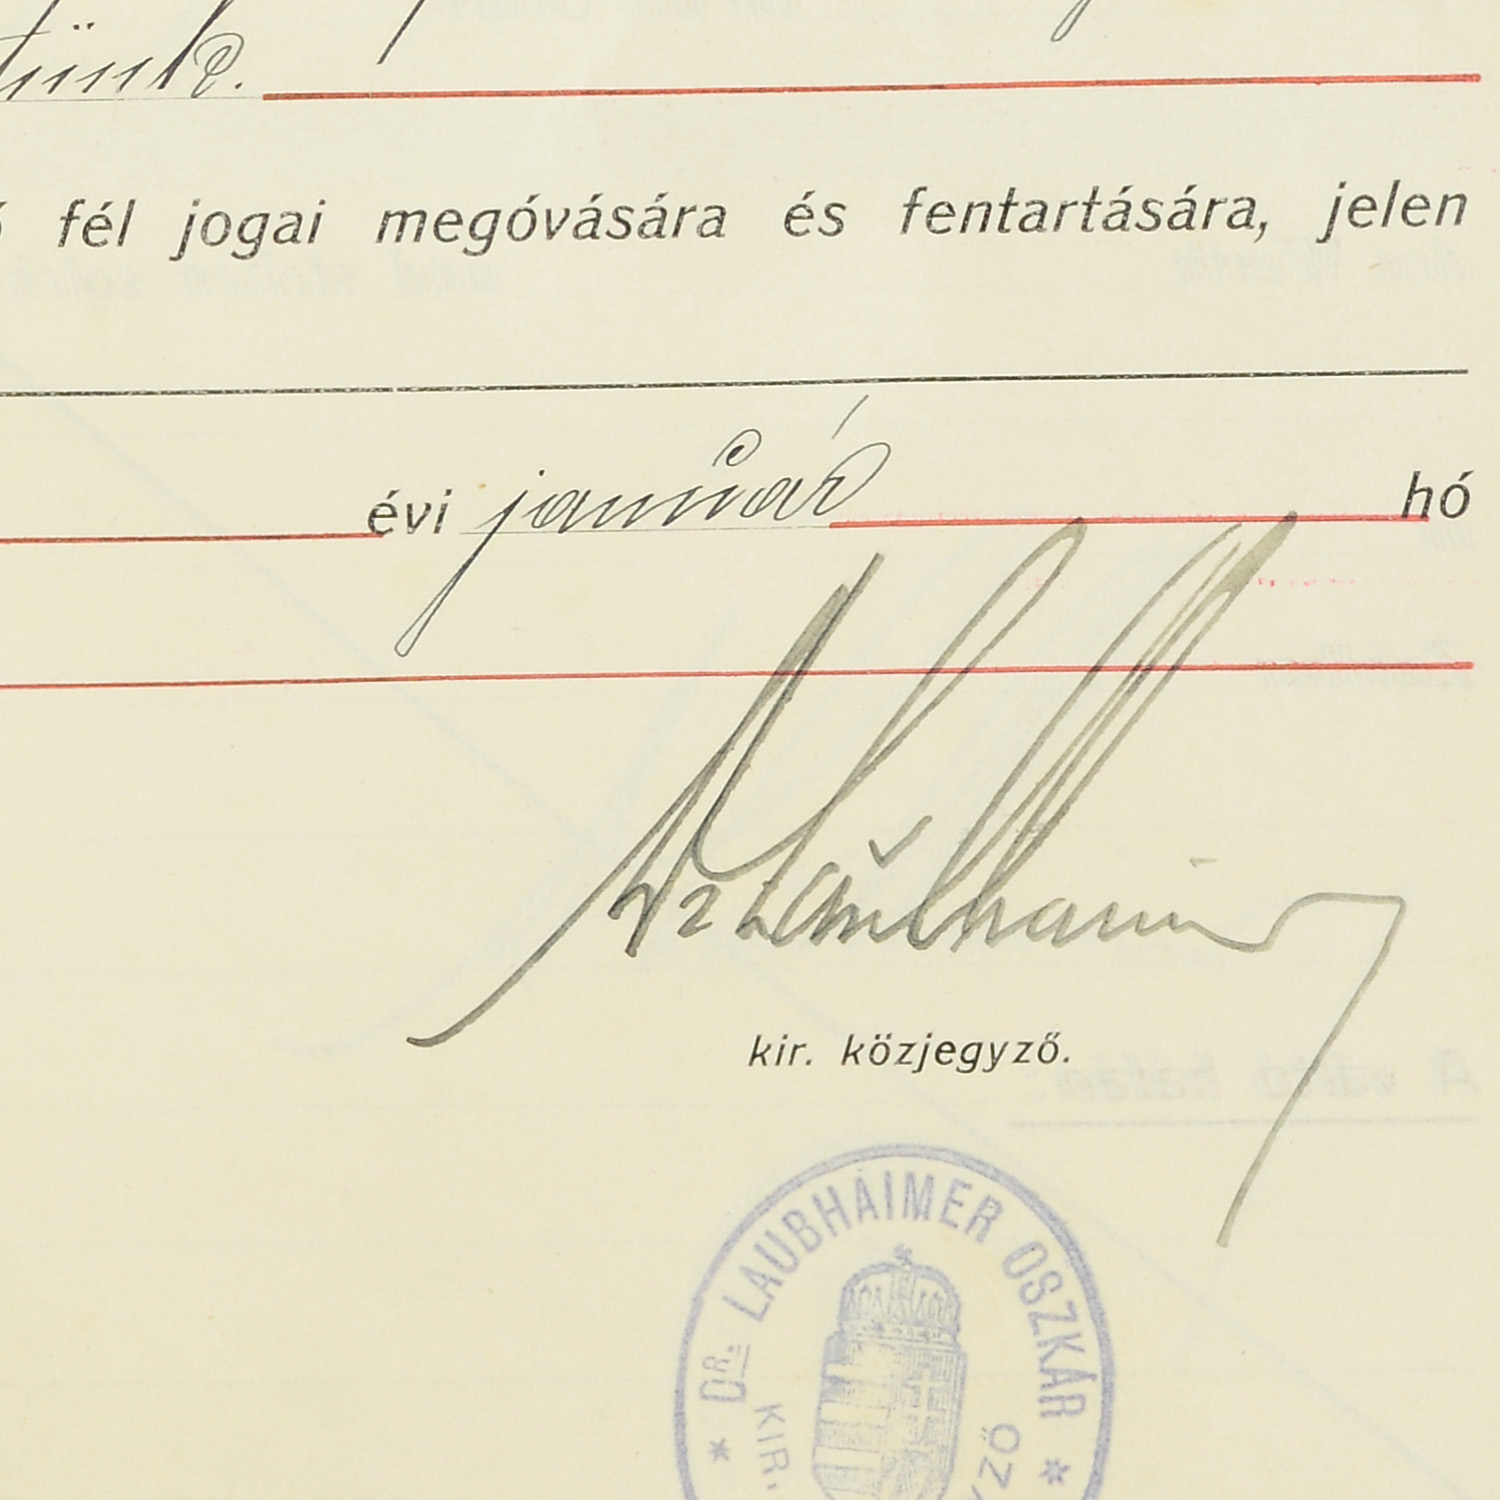 tünk.
fél jogai megóvására és fentartására, jelen
évi január hó
Dr Laubhaimer
kir. közjegyző.
* DR. LAUBHAIMER OSZKÁR *
KIR. ZŐ